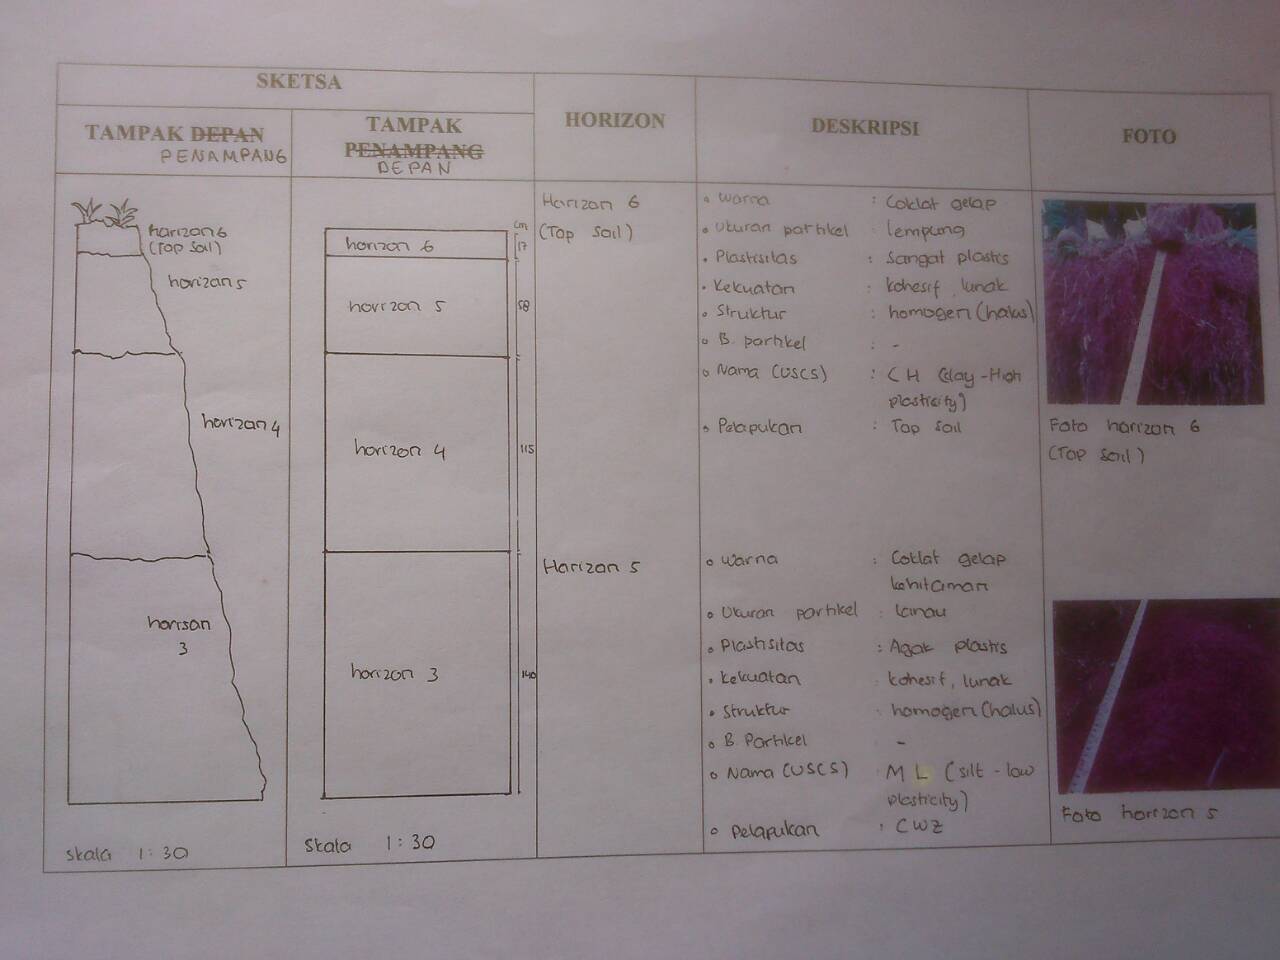 SKETSA
TAMPAK DEPAN
PENAMPANG
TAMPAK
PENAMPANG
DEPAN
HORIZON
DESKRIPSI
FOTO
horizon 6
(Top soil)
horizon 5
horizon 4
horison
3
Skala 1 : 30
cm
horizon 6
17
horizon 5
58
horizon 4
115
horizon 3
140
Skala 1 : 30
Horizon 6
(Top Soil)
Warna : Coklat gelap
Ukuran partikel : lempung
Plastisitas : Sangat plastis
Kekuatan : kohesif, lunak
Struktur : homogen (halus)
B. partikel : -
Nama (USCS) : CH (clay - High
plasticity)
Pelapukan : Top soil
Foto horizon 6
(Top Soil)
Horizon 5
Warna : Coklat gelap
kehitaman
Ukuran partikel : lanau
Plastisitas : Agak plastis
Kekuatan : kohesif, lunak
Struktur : homogen (halus)
B. Partikel -
Nama (USCS) : ML (silt - low
plasticity)
Pelapukan : CWZ
Foto horizon 5